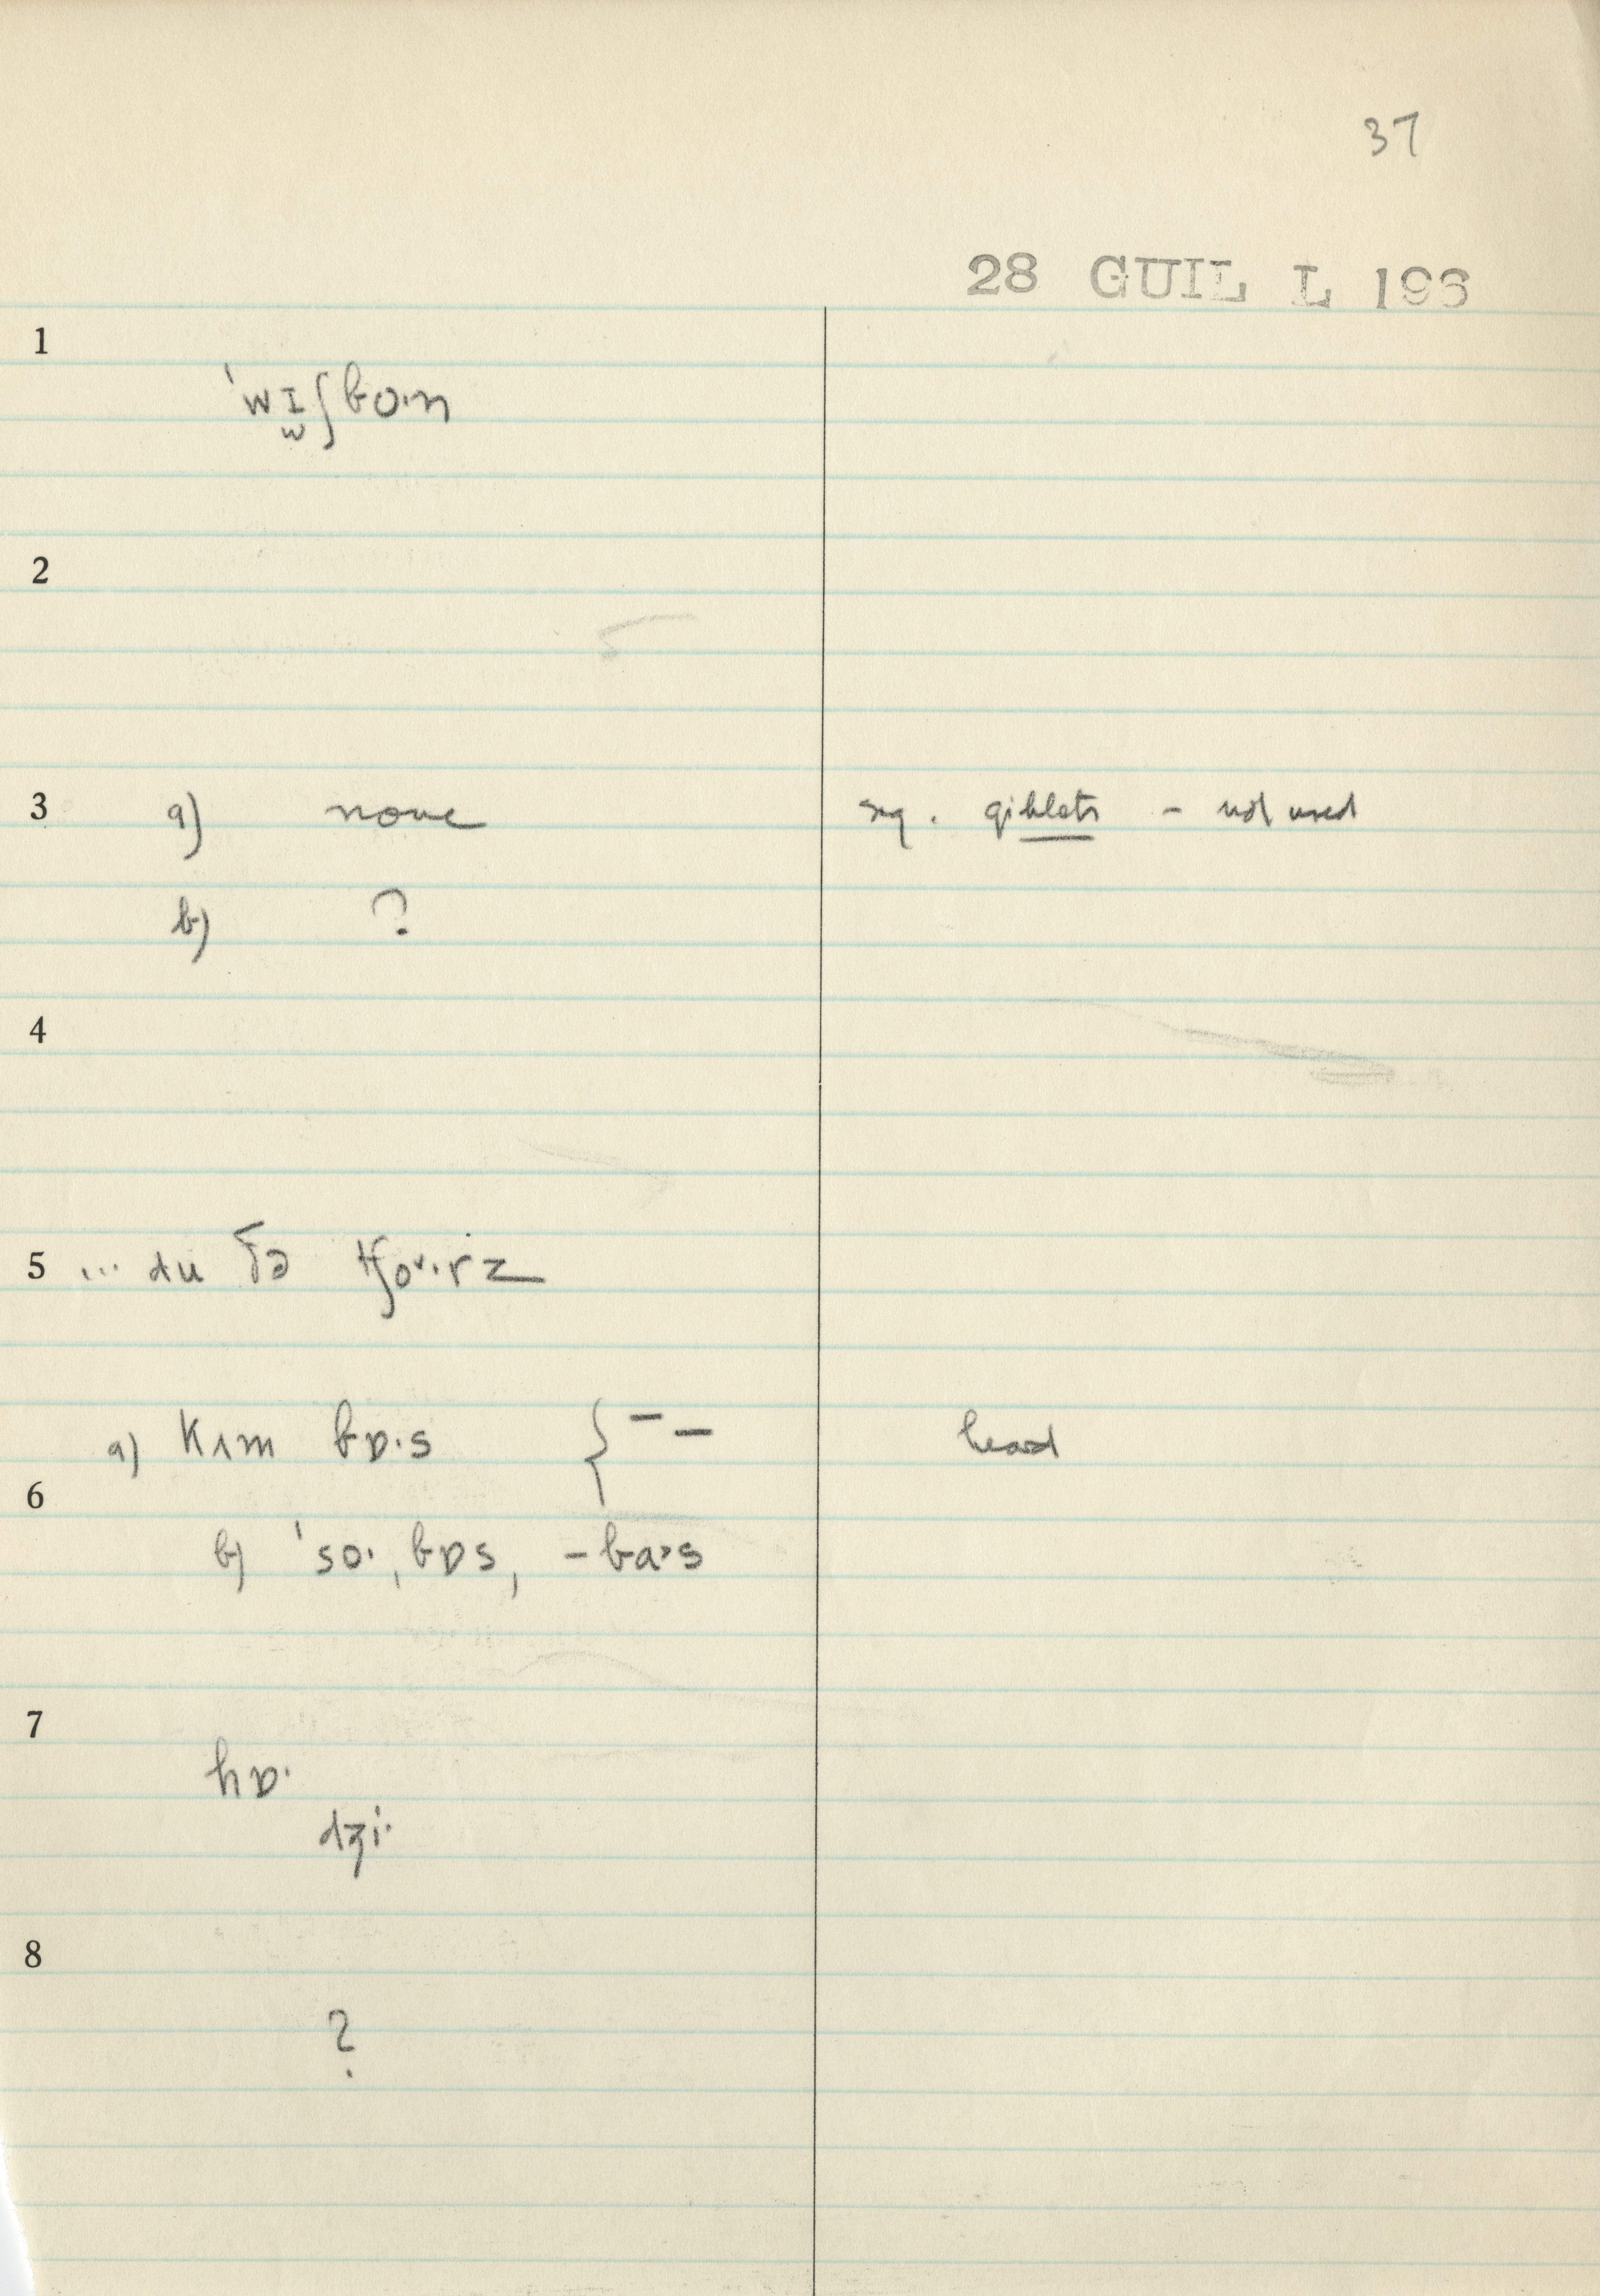 37
28 GUIL L 196
1
ˈwɪʃbo·n
w
2
3 a) none sug. giblets – not used
b) ?
4
5 ... du ðə tʃoᵛ·rz
a) kʌm bɒ·s { – – heard
6
b) ˈso·ˌbɒs, –ba˃s
7
hɒ·
dʒi·
8
?